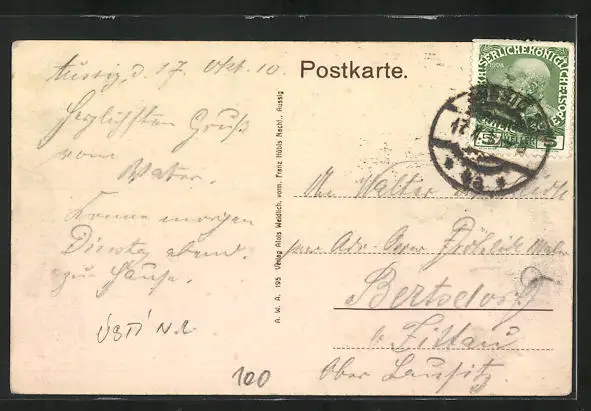 Aussig, d. 17. Okt. 10.
Herzlichsten Gruß
vom
Vater.
Komme morgen
Dinstag abend
zu Hause.
ÚSTÍ N.L
100
A. W. A. 195 Verlag Alois Weidlich, vorm. Franz Hübls Nachf., Aussig
Postkarte.
KAISERLICHE KÖNIGLICHE
1908
5 HELLER 5
Walter
Bertsdorf
b. Zittau
Ober Lausitz